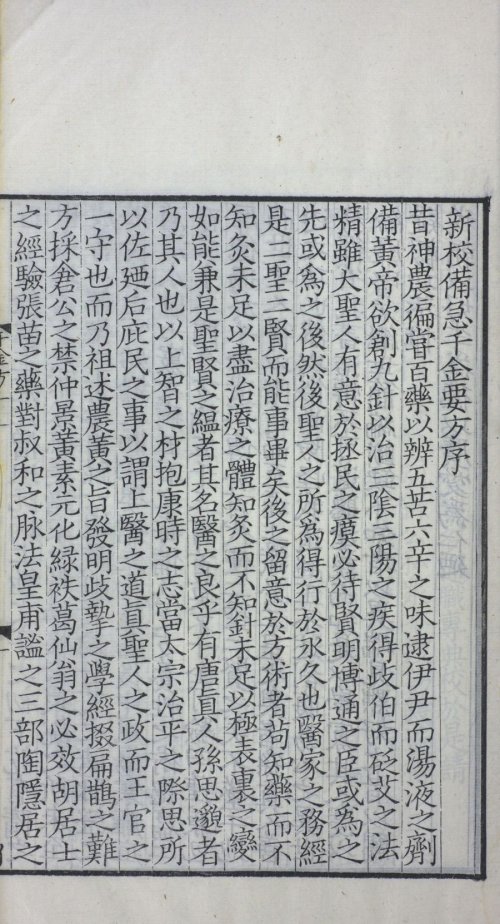 新校備急千金要方序
昔神農徧嘗百藥以辨五苦六辛之味逮伊尹而湯液之劑
備黃帝欲創九針以治三陰三陽之疾得歧伯而砭艾之法
精雖大聖人有意於拯民之瘼必待賢明博通之臣或爲之
先或爲之後然後聖人之所爲得行於永久也醫家之務經
是二聖二賢而能事畢矣後之留意於方術者苟知藥而不
知灸未足以盡治療之體知灸而不知針未足以極表裏之變
如能兼是聖賢之縕者其名醫之良乎有唐眞人孫思邈者
乃其人也以上智之材抱康時之志當太宗治平之際思所
以佐廼后庇民之事以謂上醫之道眞聖人之政而王官之
一守也而乃祖述農黃之旨發明歧摯之學經掇扁鵲之難
方採倉公之禁仲景黃素元化緑袟葛仙翁之必效胡居士
之經驗張苗之藥對叔和之脉法皇甫謐之三部陶隱居之